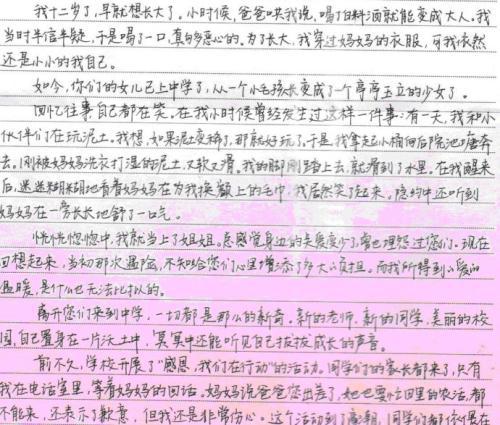 我十二岁了,早就想长大了。小时候,爸爸哄我说,喝了料酒就能变成大人。我
当时半信半疑,于是喝了一口,真够恶心的。为了长大,我穿过妈妈的衣服,可我依然
还是小小的我自己。
如今,你们的女儿已上中学了,从一个小毛孩长变成了一个亭亭玉立的少女了。
回忆往事自己都在笑。在我小时候曾经发生过这样一件事:有一天,我和小
伙伴们在玩泥土。我想,如果泥土变稀了,那就好玩了,于是,我拿起小桶向后院池塘奔
去。刚被妈妈洗衣打湿的泥土,又软又滑。我的脚刚踏上去,就滑到了水里。在我醒来
后,迷迷糊糊地看着妈妈在为我换额上的毛巾,我居然笑了起来。隐约中还听到
妈妈在一旁长长地舒了一口气。
恍恍惚惚中,我就当上了姐姐。总感觉身边的关爱少了,曾也埋怨过您们。现在
回想起来,当初那次遇险,不知给您们心里增添了多大的负担。而我所得到的爱的
温暖,是什么也无法比拟的。
离开您们来到中学,一切都是那么的新奇。新的老师,新的同学,美丽的校
园,自己置身在一片沃土中,冥冥中还能听见自己拔拔成长的声音。
前不久,学校开展了“感恩,我们在行动”的活动。同学们的家长都来了,只有
我在电话室里,等着妈妈的回话。妈妈说爸爸您出差了,她也要忙田里的农活,都
不能来,还表示了歉意,但我还是非常伤心。这个活动到了高潮,同学们都依偎在